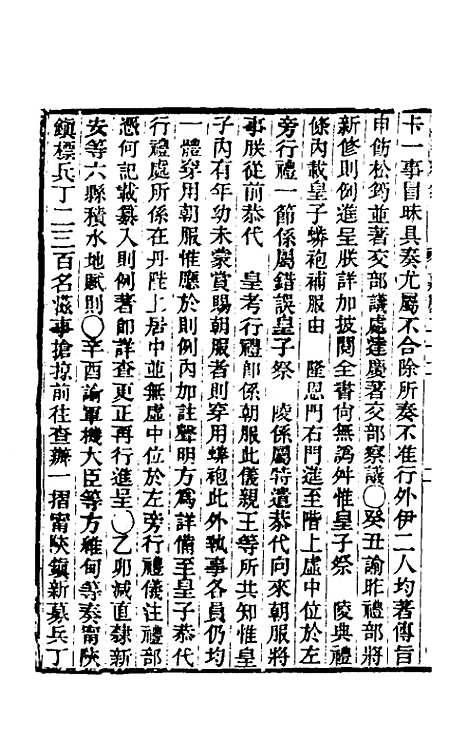 卡一事冒昧具奏尤屬不合除所奏不准行外伊二人均著傳旨
申飭松筠並著交部議處達慶著交部察議〇癸丑諭昨禮部將
新修則例進呈朕詳加披閱全書尙無譌舛惟皇子祭　陵典禮
條內載皇子蟒袍補服由　隆恩門右門進至階上虛中位於左
旁行禮一節係屬錯誤皇子祭　陵係屬特遣恭代向來朝服將
事朕從前恭代　皇考行禮卽係朝服此儀親王等所共知惟皇
子內有年幼未蒙賞賜朝服者則穿用蟒袍此外執事各員仍均
一體穿用朝服惟應於則例內加註聲明方爲詳備至皇子恭代
行禮處所係在丹陛上居中並無虛中位於左旁行禮儀注禮部
憑何記載纂入則例著卽詳查更正再行進呈〇乙卯減直隸新
安等六縣積水地賦則〇辛酉諭軍機大臣等方維甸等奏甯陝
鎮標兵丁二三百名滋事搶掠前往查辦一摺甯陝鎮新募兵丁